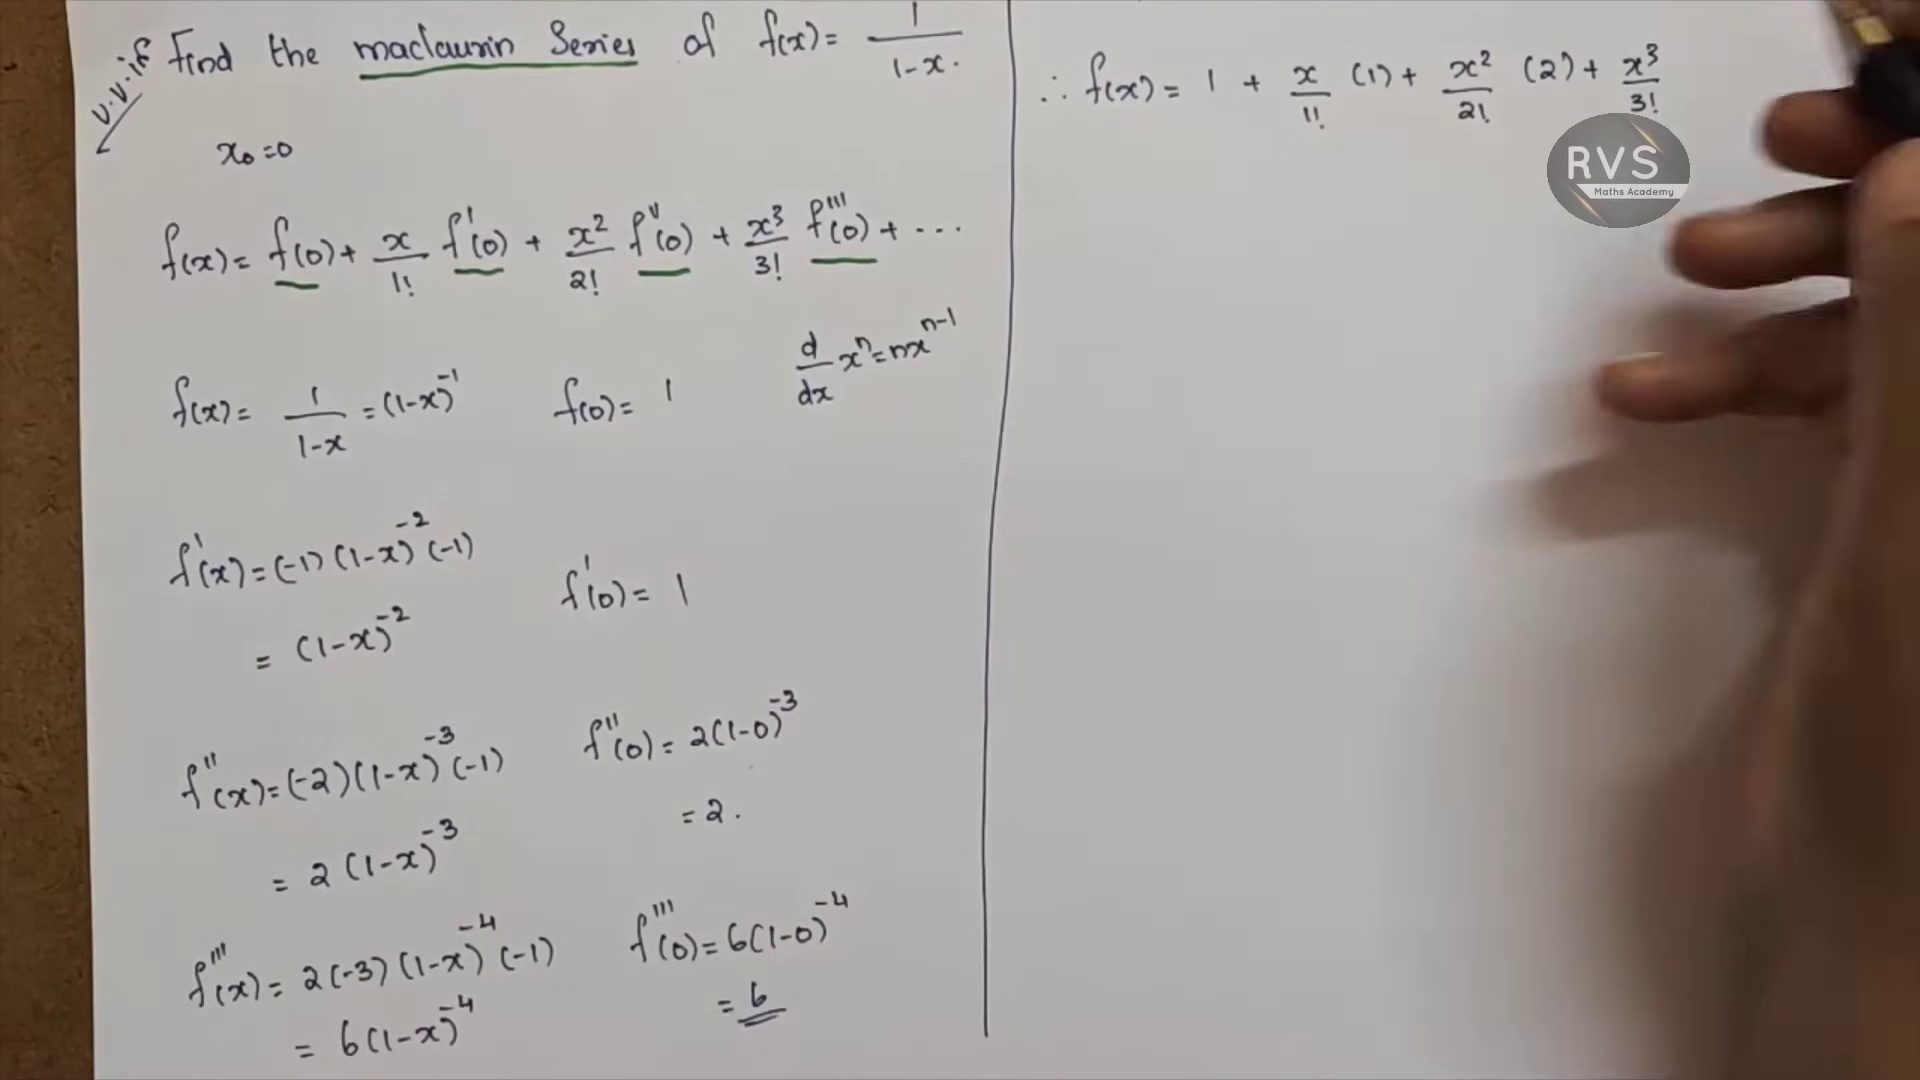 v.v.if Find the maclaurin Series of f(x) = 1/(1-x).
x₀ = 0
f(x) = f(0) + x/1! f'(0) + x²/2! f''(0) + x³/3! f'''(0) + ...
d/dx xⁿ = nxⁿ⁻¹
f(x) = 1/(1-x) = (1-x)⁻¹ f(0) = 1
f'(x) = (-1)(1-x)⁻²(-1)
= (1-x)⁻² f'(0) = 1
f''(x) = (-2)(1-x)⁻³(-1) f''(0) = 2(1-0)⁻³
= 2(1-x)⁻³ = 2.
f'''(x) = 2(-3)(1-x)⁻⁴(-1) f'''(0) = 6(1-0)⁻⁴
= 6(1-x)⁻⁴ = 6
∴ f(x) = 1 + x/1! (1) + x²/2! (2) + x³/3!
RVS
Maths Academy